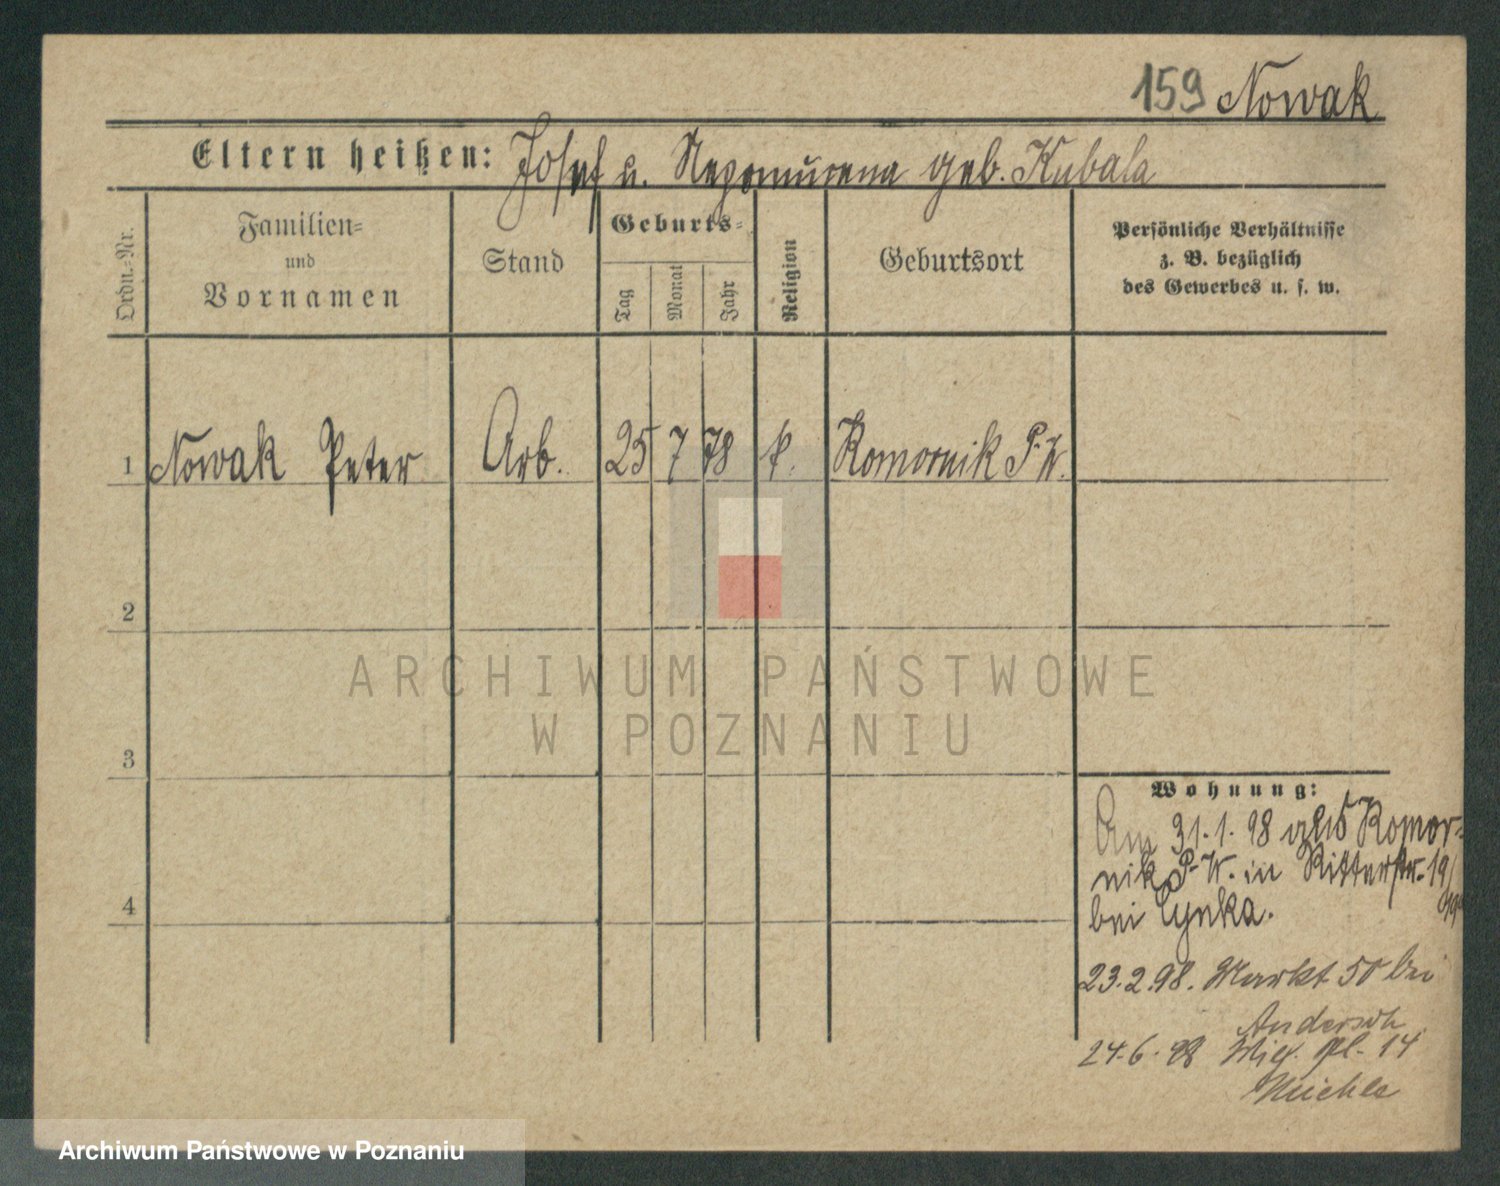 159 Nowak
Eltern heißen: Josef u. Nepomucena geb. Kubala
Ordn.-Nr.
Familien-
und
Vornamen
Stand
Geburts-
Tag
Monat
Jahr
Religion
Geburtsort
Persönliche Verhältnisse
z. B. bezüglich
des Gewerbes u. s. w.
1 Nowak Peter Arb. 25 7 78 k. Komornik P. W.
2
ARCHIWUM PAŃSTWOWE
W POZNANIU
3
Wohnung:
Am 31.1.98 als Komor-
nik P-W. in Ritterstr. 19/
bei Cynka.
4
23.2.98. Markt 50 bei
Andersch
24.6.98 pl. 14
Archiwum Państwowe w Poznaniu